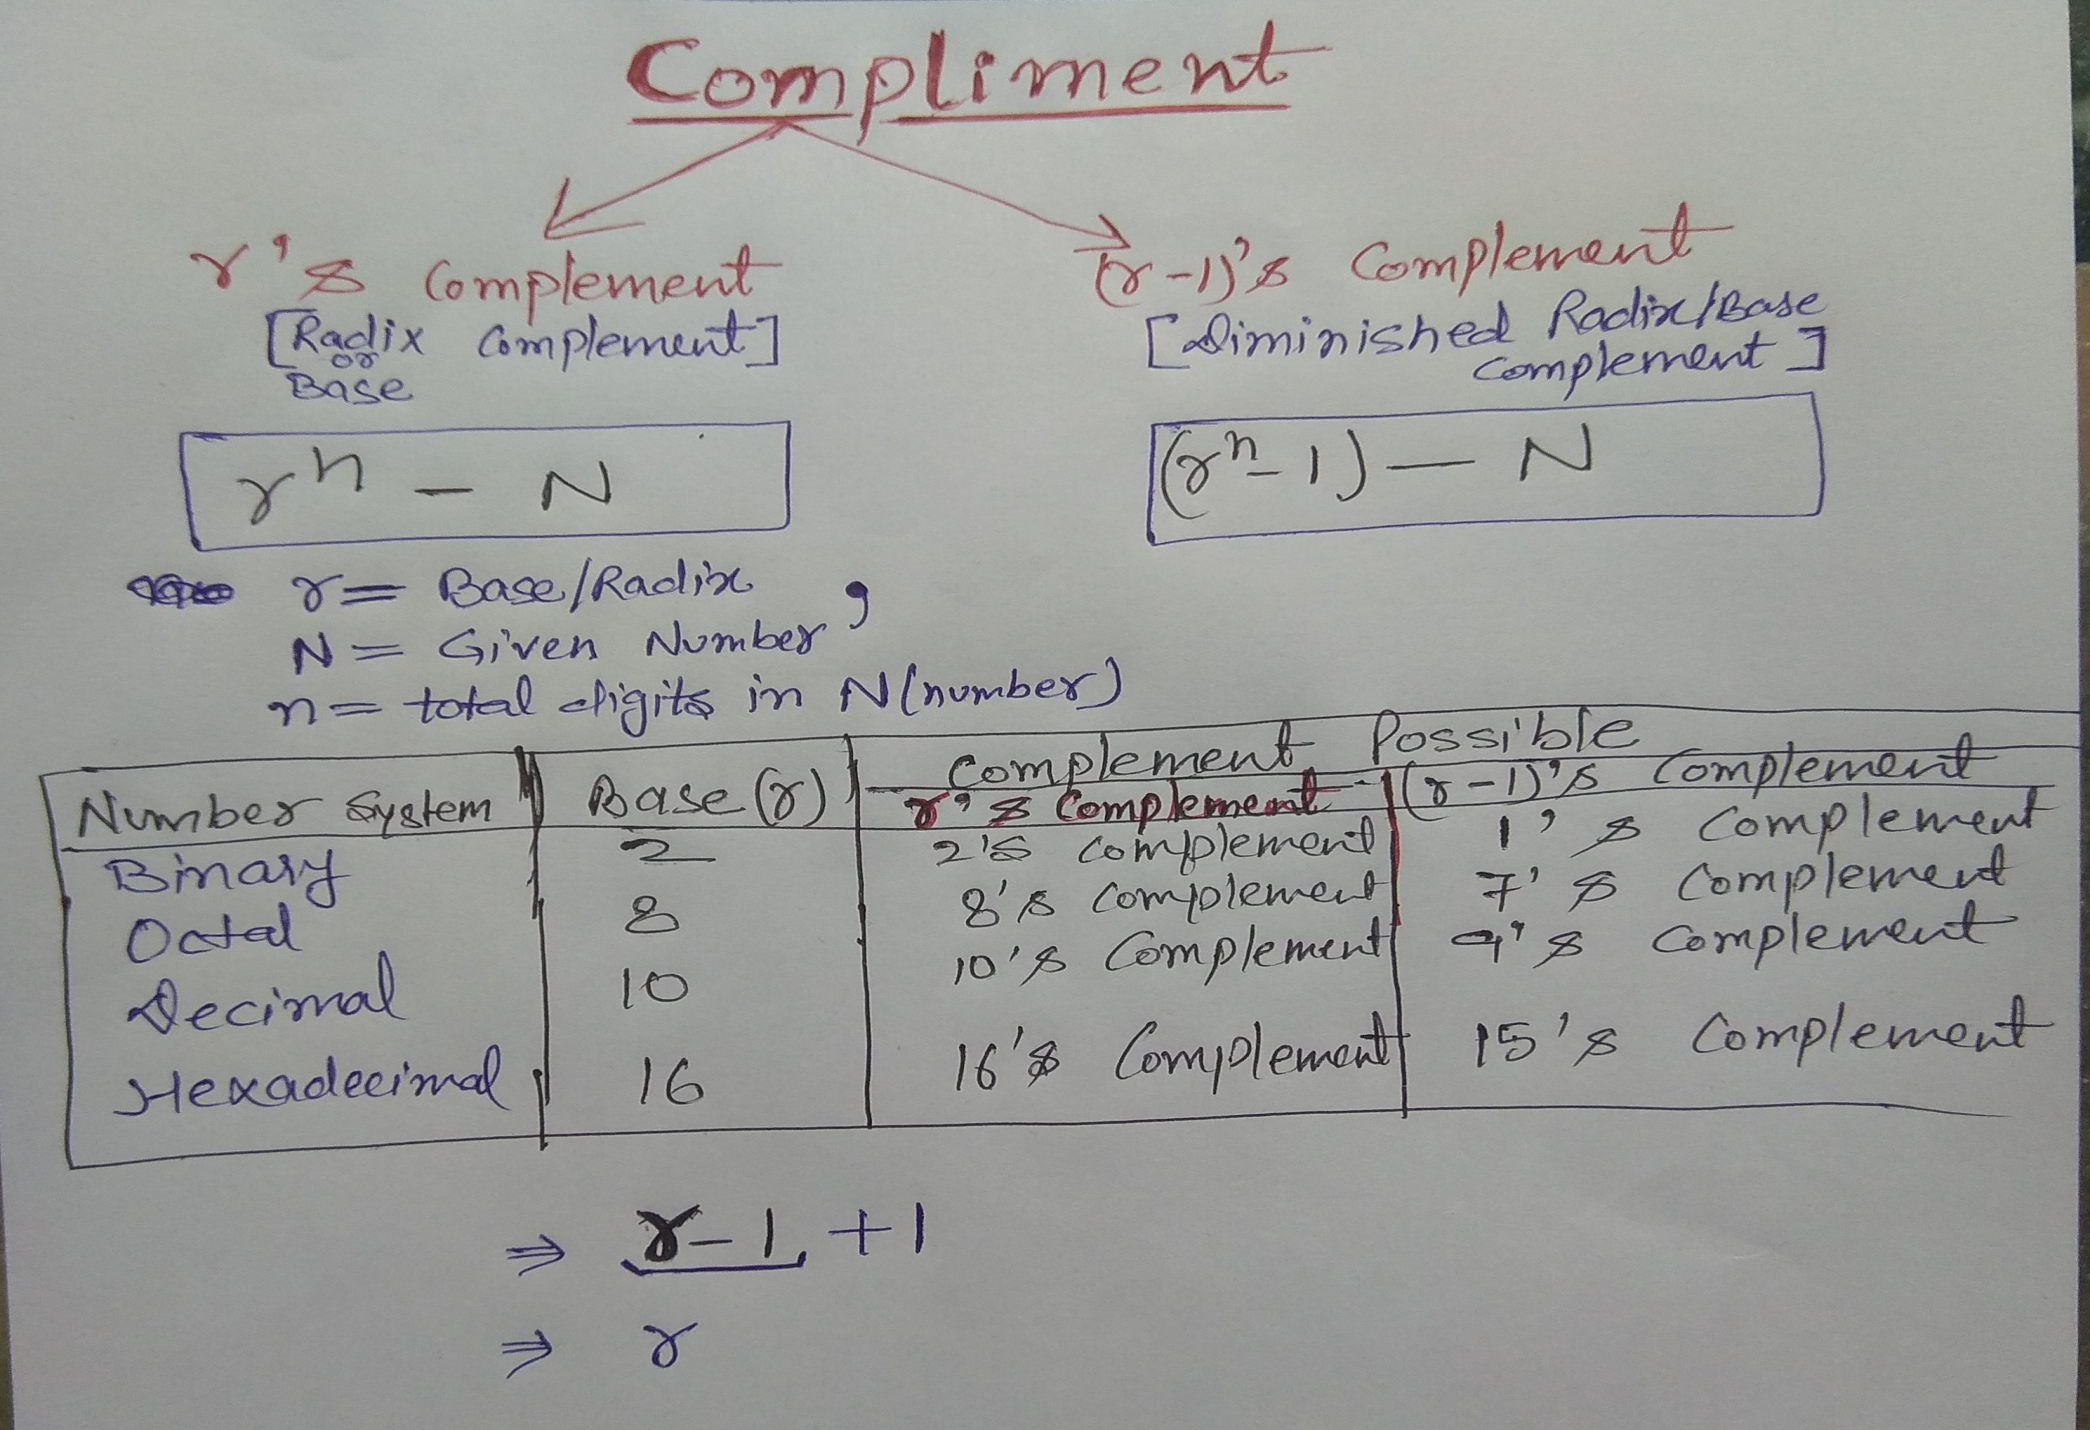 Compliment
r's Complement
(r-1)'s Complement
[Radix Complement]
or
Base
[Diminished Radix/Base
Complement]
rⁿ - N
(rⁿ-1) - N
r = Base/Radix,
N = Given Number
n = total digits in N(number)
Number System Base (r) Complement Possible
r's Complement (r-1)'s Complement
Binary 2 2's Complement 1's Complement
Octal 8 8's Complement 7's Complement
Decimal 10 10's Complement 9's Complement
Hexadecimal 16 16's Complement 15's Complement
⇒ r-1 +1
⇒ r